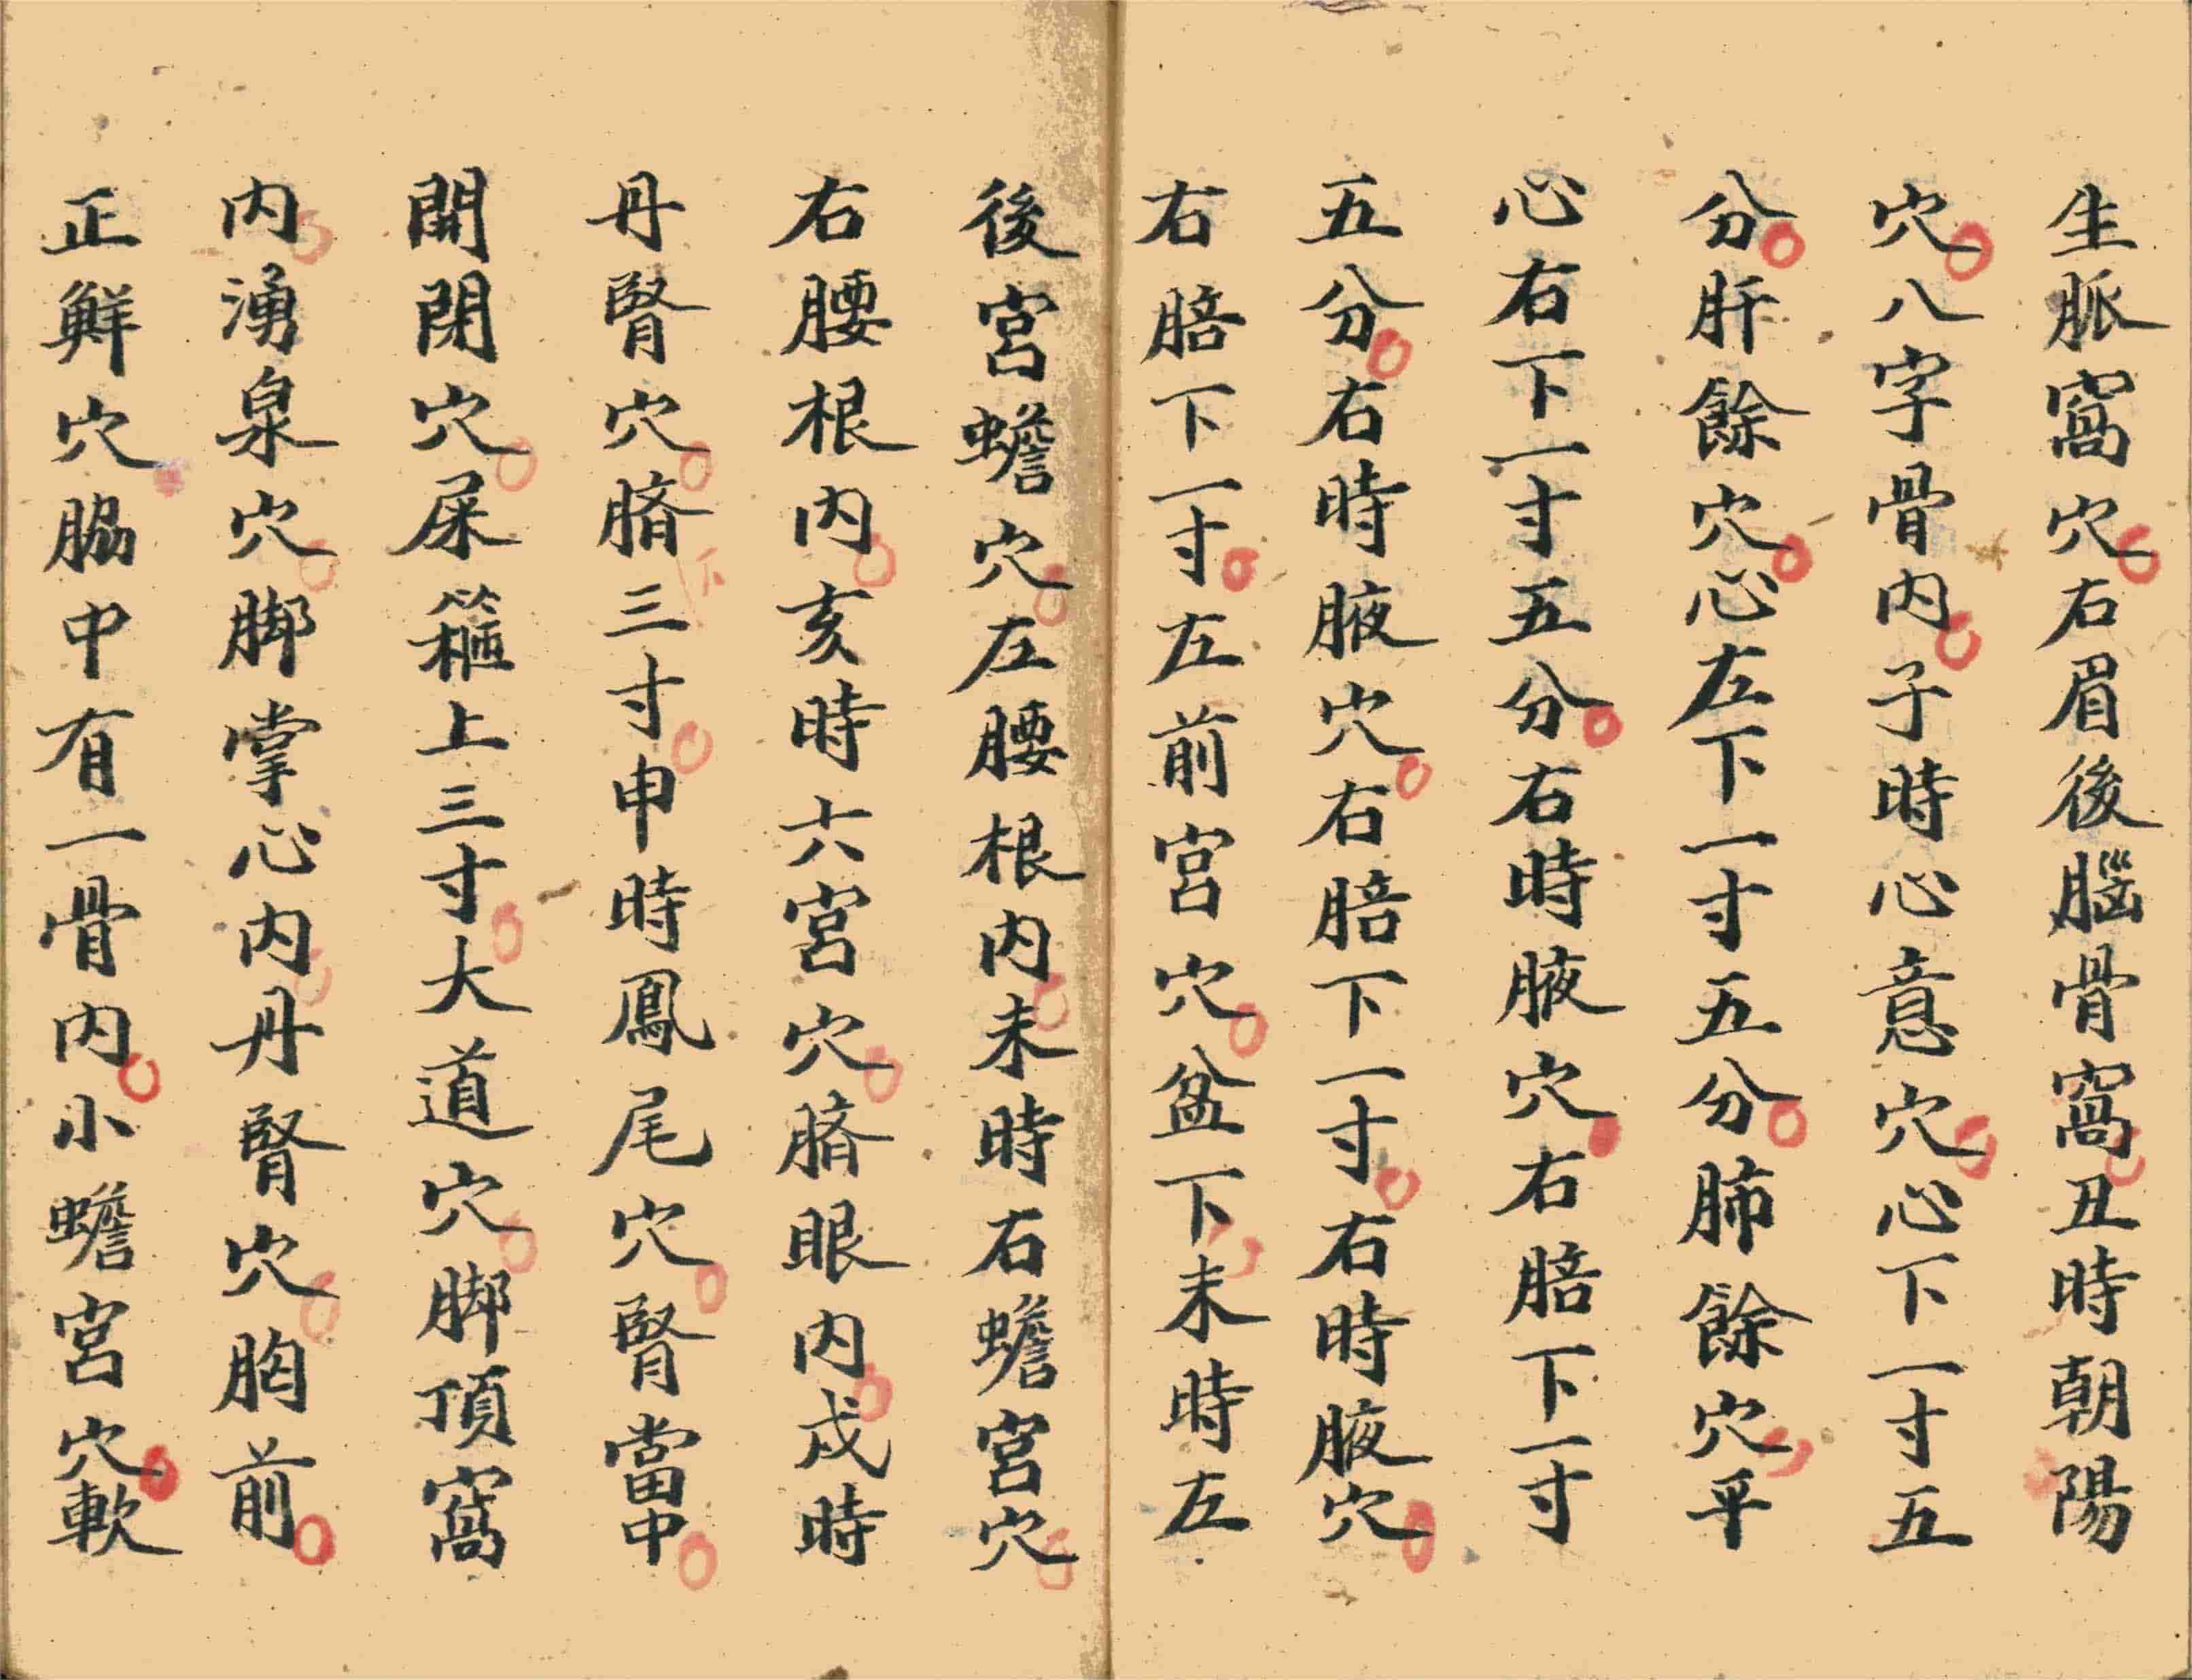 生脈窩穴右眉後腦骨窩丑時朝陽
穴八字骨內子時心意穴心下一寸五
分肝餘穴心左下一寸五分肺餘穴平
心右下一寸五分右時腋穴右腤下一寸
五分右時腋穴右腤下一寸右時腋穴
右腤下一寸左前宮穴盆下末時左
後宮蟾穴左腰根內未時右蟾宮穴
右腰根內亥時六宮穴臍眼內戌時
丹腎穴臍下三寸申時鳳尾穴腎當中
開閉穴屎箍上三寸大道穴脚頂窩
內湧泉穴脚掌心內丹腎穴胸前
正鮮穴脇中有一骨內小蟾宮穴軟